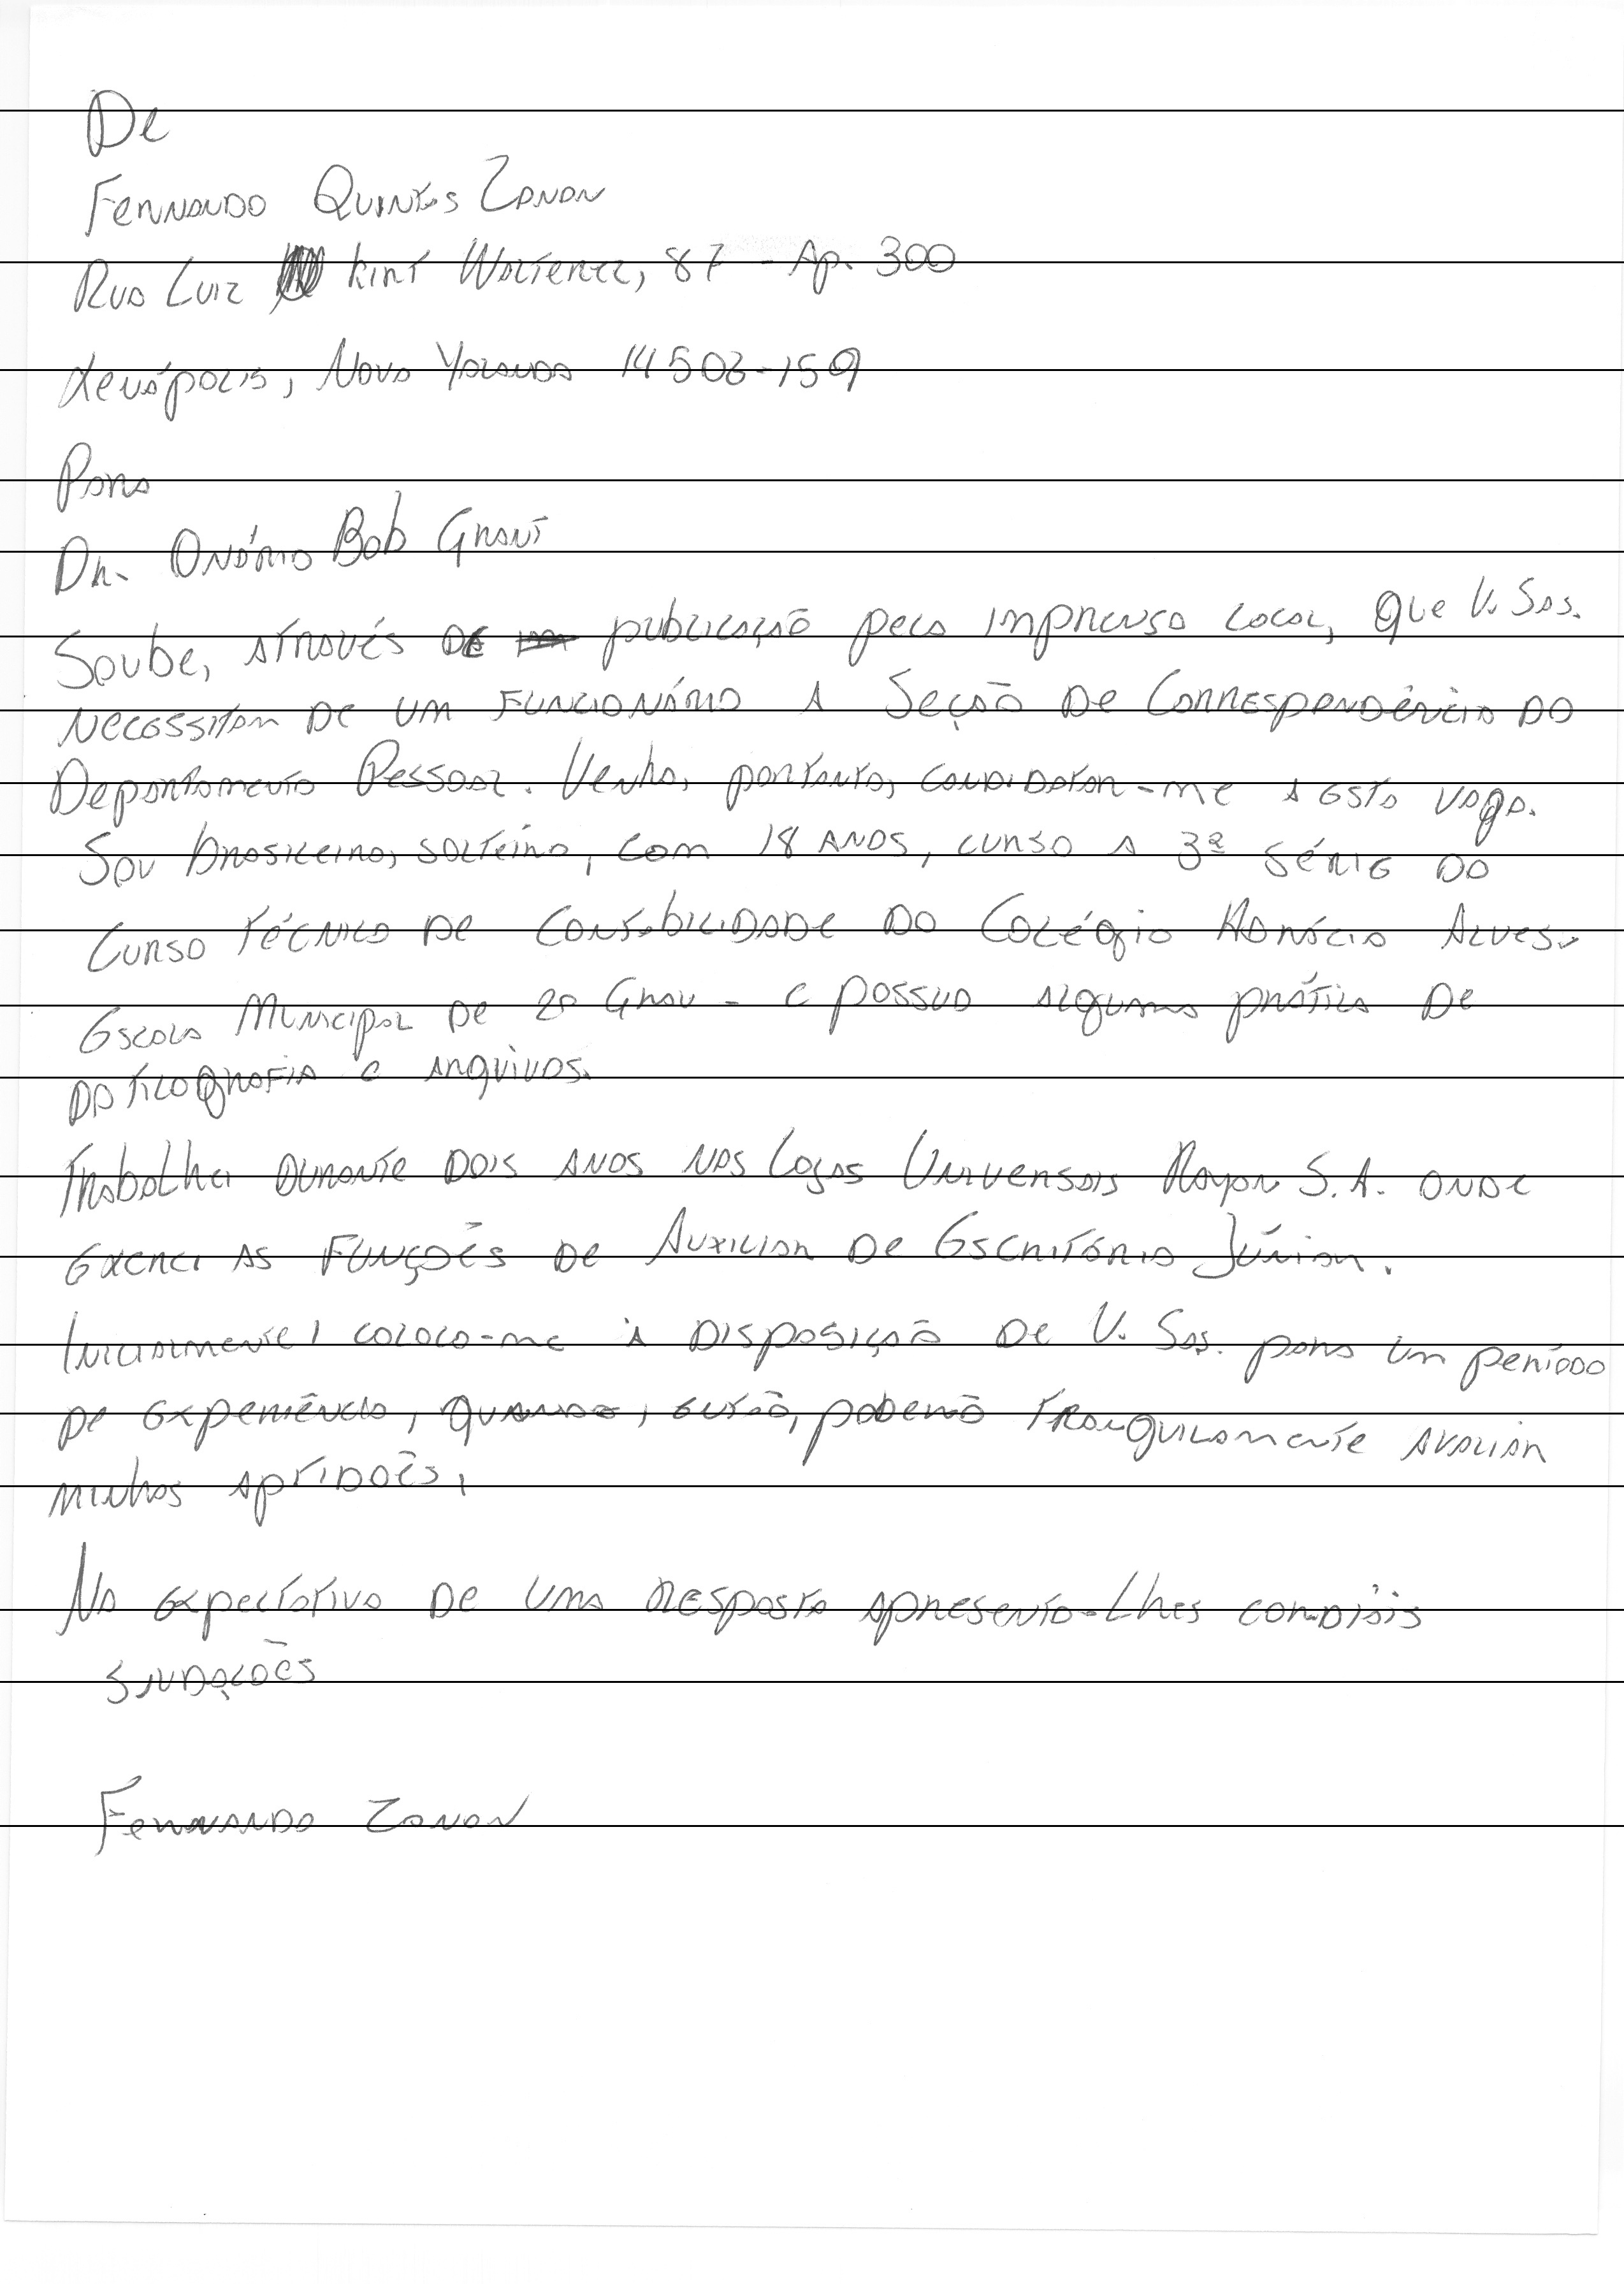 De
Fernando Quintes Zanon
Rua Luiz Kirt Walterez, 87 - Ap. 300
Xenópolis, Nova Yolanda 14503-159
Para
Dr. Onório Bob Grant
Soube, através de publicação pela imprensa local, que V. Sas.
necessitam de um funcionário a Seção de Correspondência do
Departamento Pessoal. Venho, portanto, candidatar-me a esta vaga.
Sou brasileiro, solteiro, com 18 anos, curso a 3ª série do
Curso técnico de Contabilidade do Colégio Horácio Alves -
Escola Municipal de 2º Grau - e possuo alguma prática de
datilografia e arquivos.
Trabalhei durante dois anos nas Lojas Universais Rayon S.A. onde
exerci as funções de Auxiliar de Escritório Júnior.
Inicialmente, coloco-me à disposição de V. Sas. para um período
de experiência, quando, então, poderão tranquilamente avaliar
minhas aptidões.
Na expectativa de uma resposta apresento-lhes cordiais
saudações
Fernando Zanon